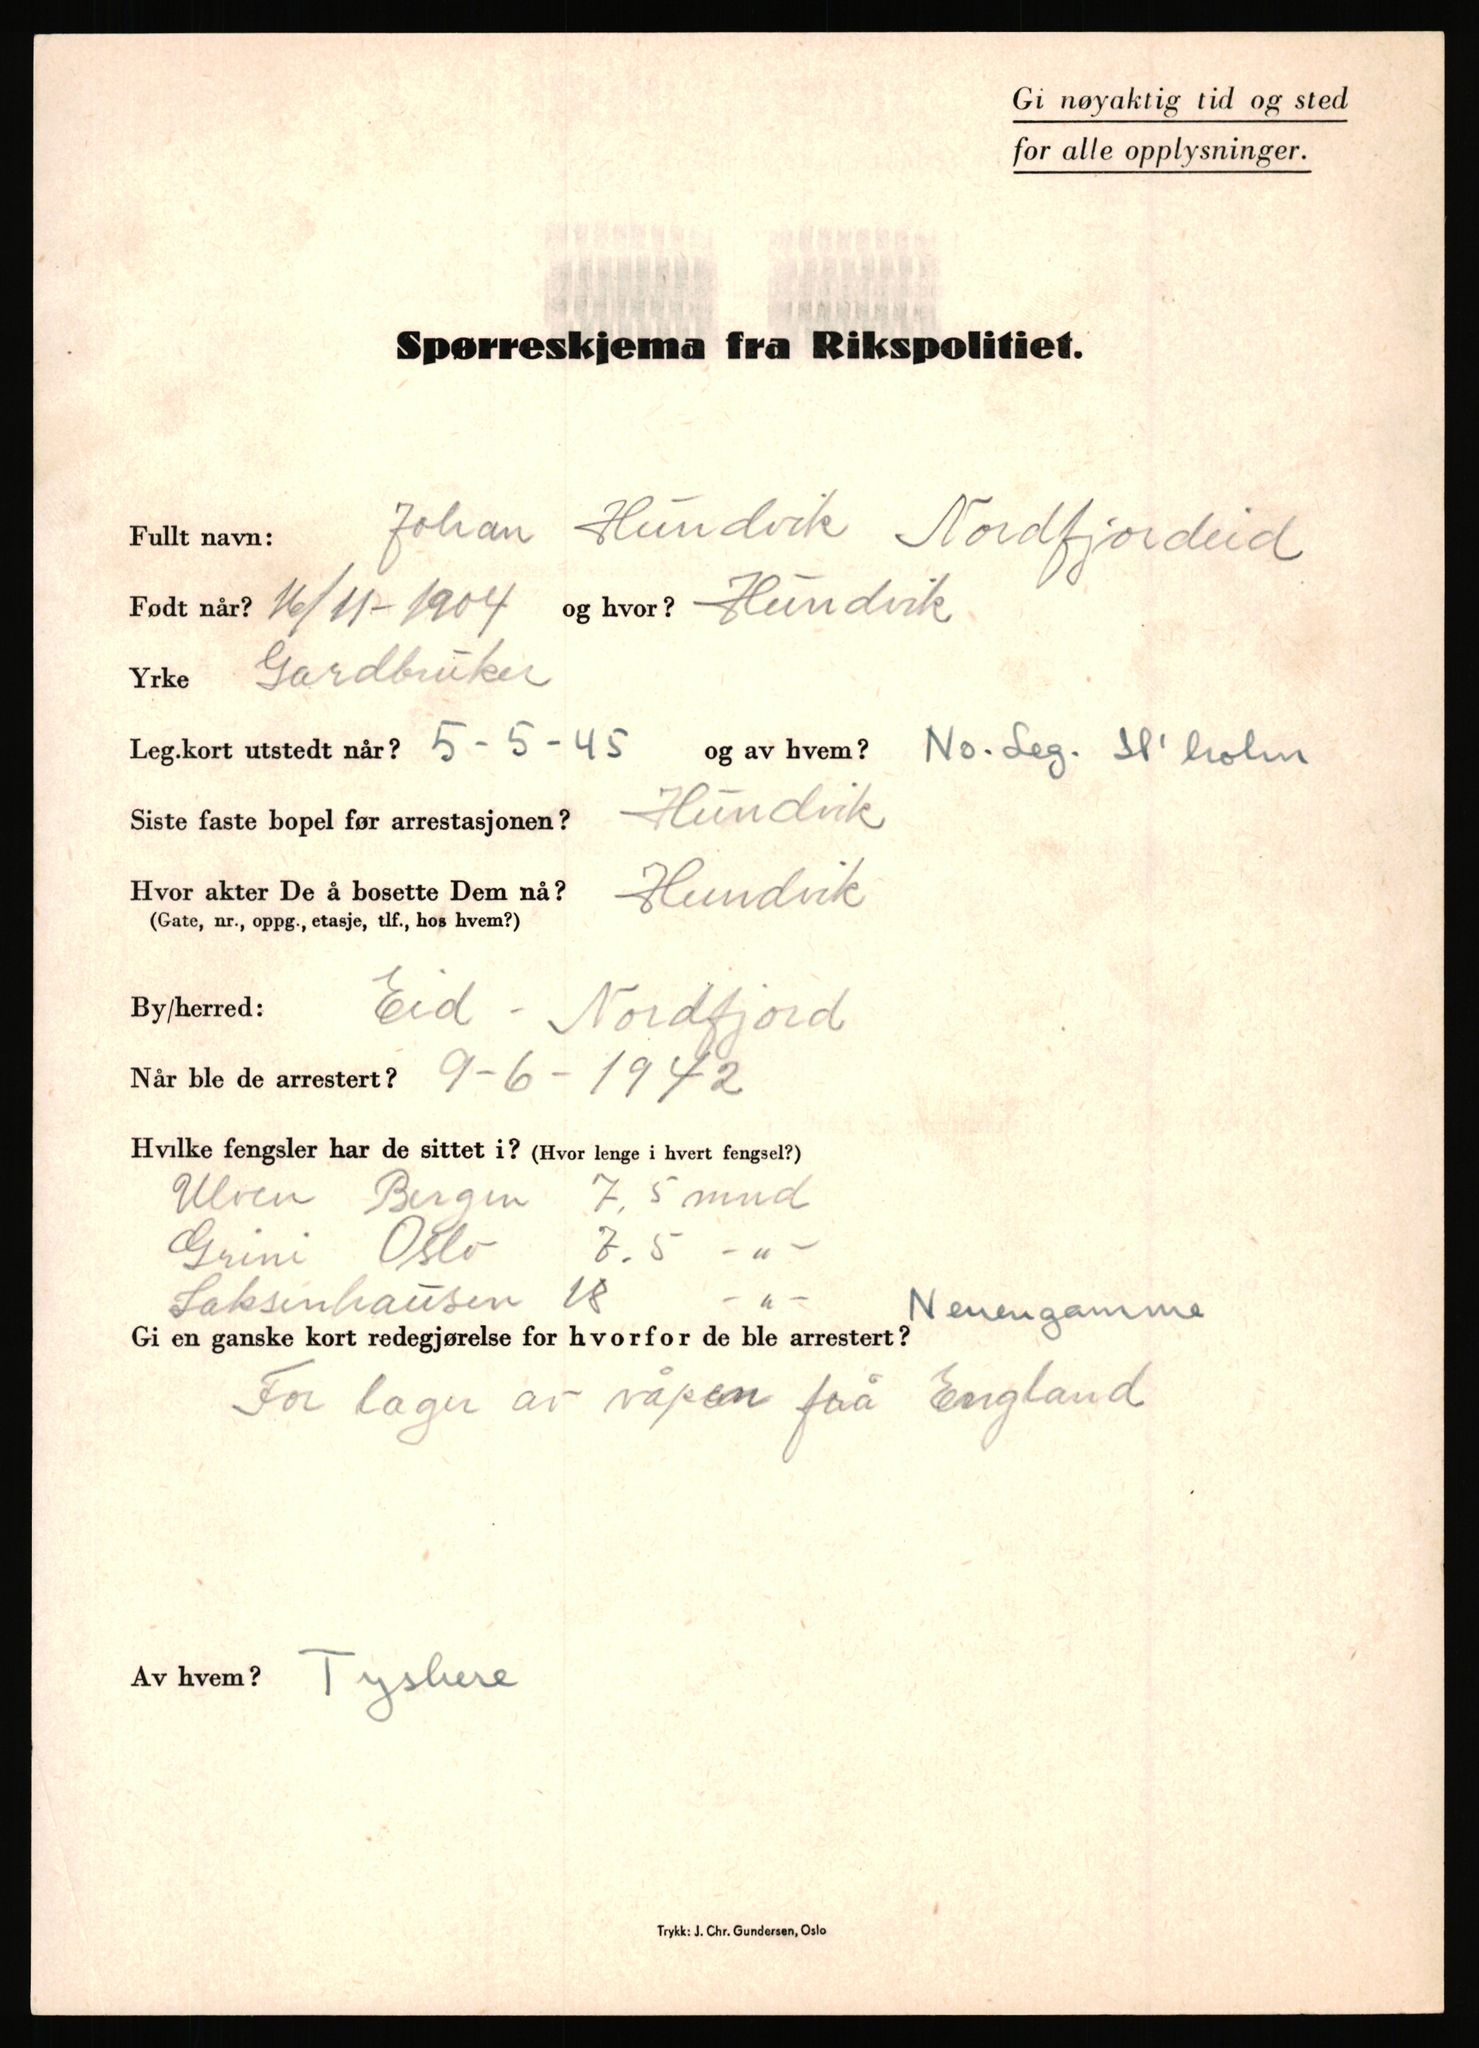 Gi nøyaktig tid og sted
for alle opplysninger.
Spørreskjema fra Rikspolitiet.
Fullt navn: Johan Hundvik Nordfjordeid
Født når? 16/11-1904 og hvor? Hundvik
Yrke Gardbruker
Leg.kort utstedt når? 5-5-45 og av hvem? No. Leg. St'holm
Siste faste bopel før arrestasjonen? Hundvik
Hvor akter De å bosette Dem nå? Hundvik
(Gate, nr., oppg., etasje, tlf., hos hvem?)
By/herred: Eid - Nordfjord
Når ble de arrestert? 9-6-1942
Hvilke fengsler har de sittet i? (Hvor lenge i hvert fengsel?)
Ulven Bergen 7,5 mnd
Grini Oslo 7.5 -"-
Saksenhausen 18 -"- Neuengamme
Gi en ganske kort redegjørelse for hvorfor de ble arrestert?
For lager av våpen fraå England
Av hvem? Tyskere
Trykk: J. Chr. Gundersen, Oslo